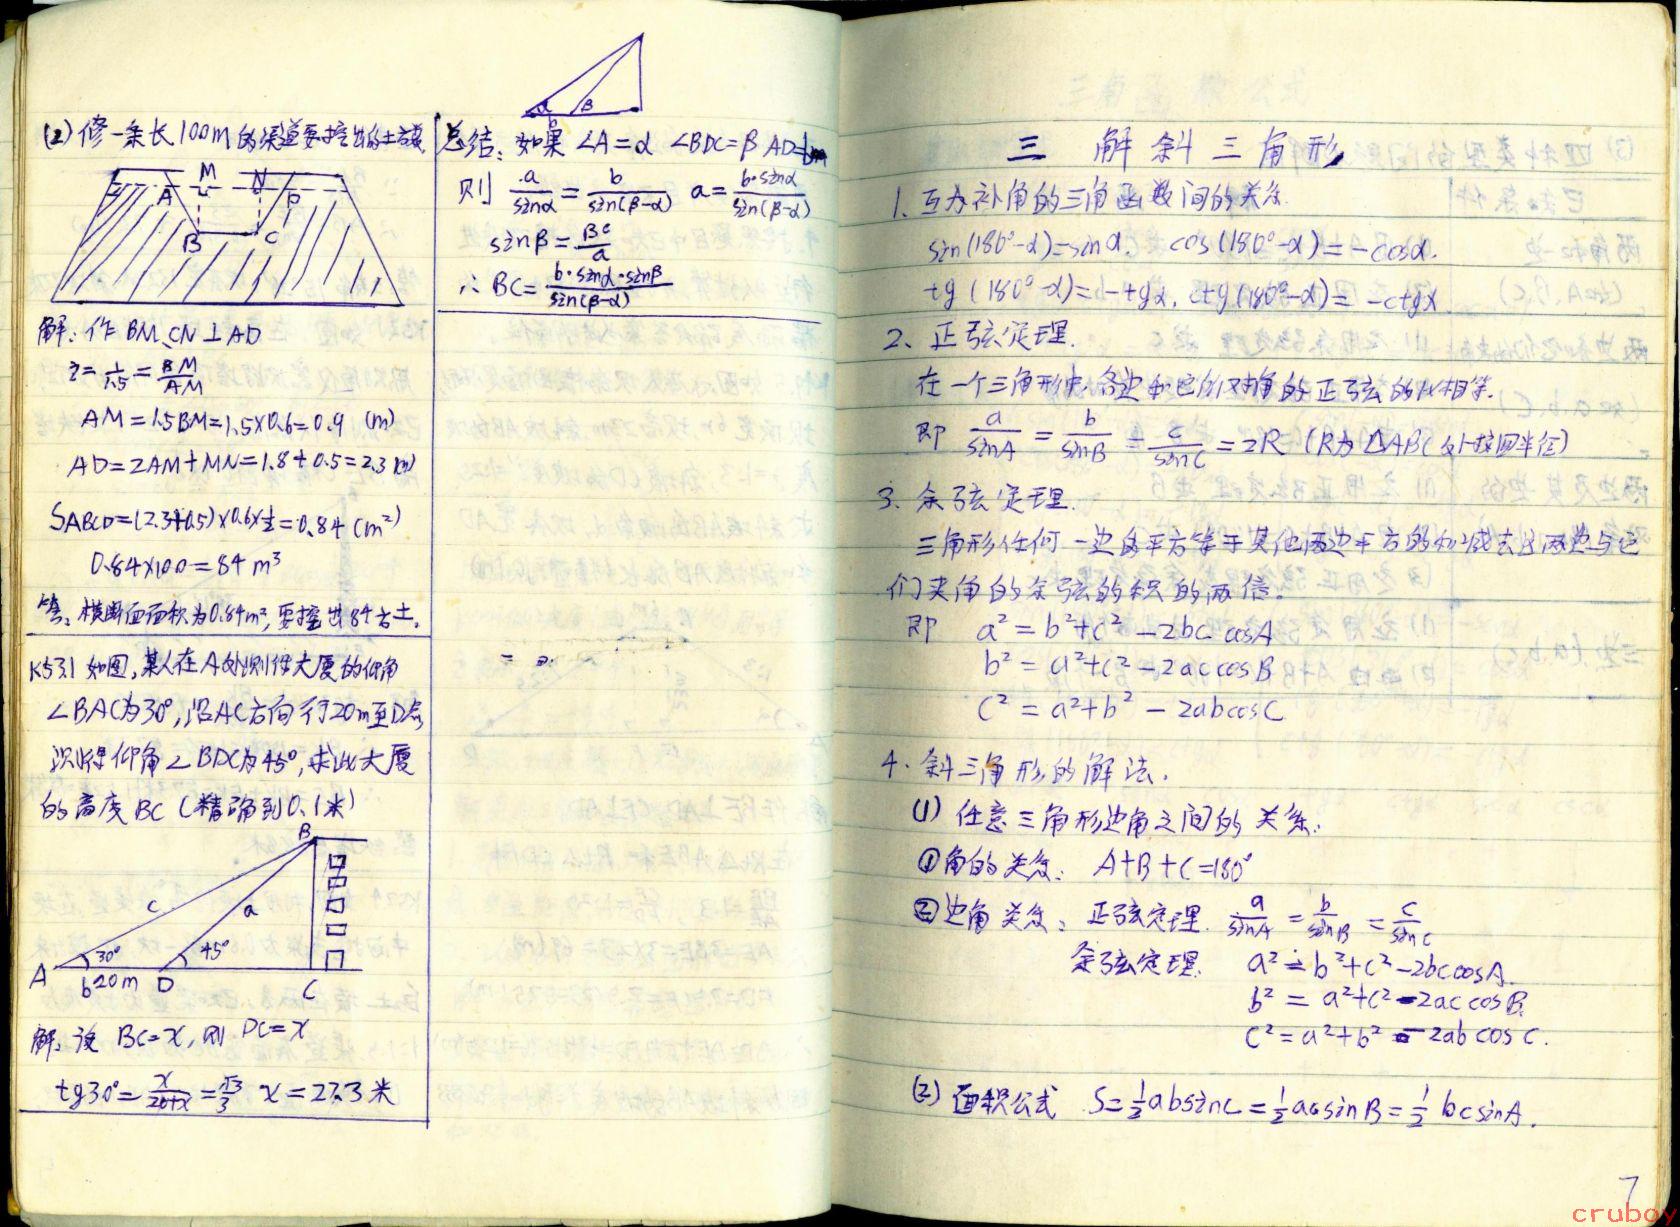 (2) 修一条长100m的渠道要挖出的土方数
M N
A D
B C
解: 作BM、CN⊥AD
i = 1/1.5 = BM/AM
AM=1.5BM=1.5×0.6=0.9 (m)
AD=2AM+MN=1.8+0.5=2.3 (m)
SABCD=(2.3+0.5)×0.6×½=0.84 (m²)
0.84×100=84m³
答: 横断面面积为0.84m², 要挖出84方土.
K53.1 如图, 某人在A处测得大厦的仰角
∠BAC为30°, 沿AC方向行20m至D点
测得仰角∠BDC为45°, 求此大厦
的高度BC (精确到0.1米)
B
c a
30° 45°
A b20m D C
解: 设BC=x, 则DC=x
tg30°=x/(20+x)=√3/3 x=27.3米
α β
b
总结: 如果∠A=α ∠BDC=β AD=b
则 a/sinα = b/sin(β-α) a=b·sinα/sin(β-α)
sinβ=BC/a
∴BC=b·sinα·sinβ/sin(β-α)
三 解斜三角形
1. 互为补角的三角函数间的关系.
sin(180°-α)=sinα. cos(180°-α)=-cosα.
tg(180°-α)=-tgα, ctg(180°-α)=-ctgα
2、正弦定理.
在一个三角形中, 各边和它所对角的正弦的比相等.
即 a/sinA = b/sinB = c/sinC = 2R (R为△ABC外接圆半径)
3. 余弦定理.
三角形任何一边的平方等于其他两边平方的和减去这两边与它
们夹角的余弦的积的两倍.
即 a²=b²+c²-2bc cosA
b²=a²+c²-2accosB
c²=a²+b²-2abcosC
4. 斜三角形的解法.
(1) 任意三角形边角之间的关系:
①角的关系: A+B+C=180°
②边角关系: 正弦定理. a/sinA = b/sinB = c/sinC
余弦定理. a²=b²+c²-2bccosA.
b²=a²+c²-2accosB.
c²=a²+b²-2abcosC.
(2) 面积公式 S=½absinC=½acsinB=½bcsinA.
7
cruboy